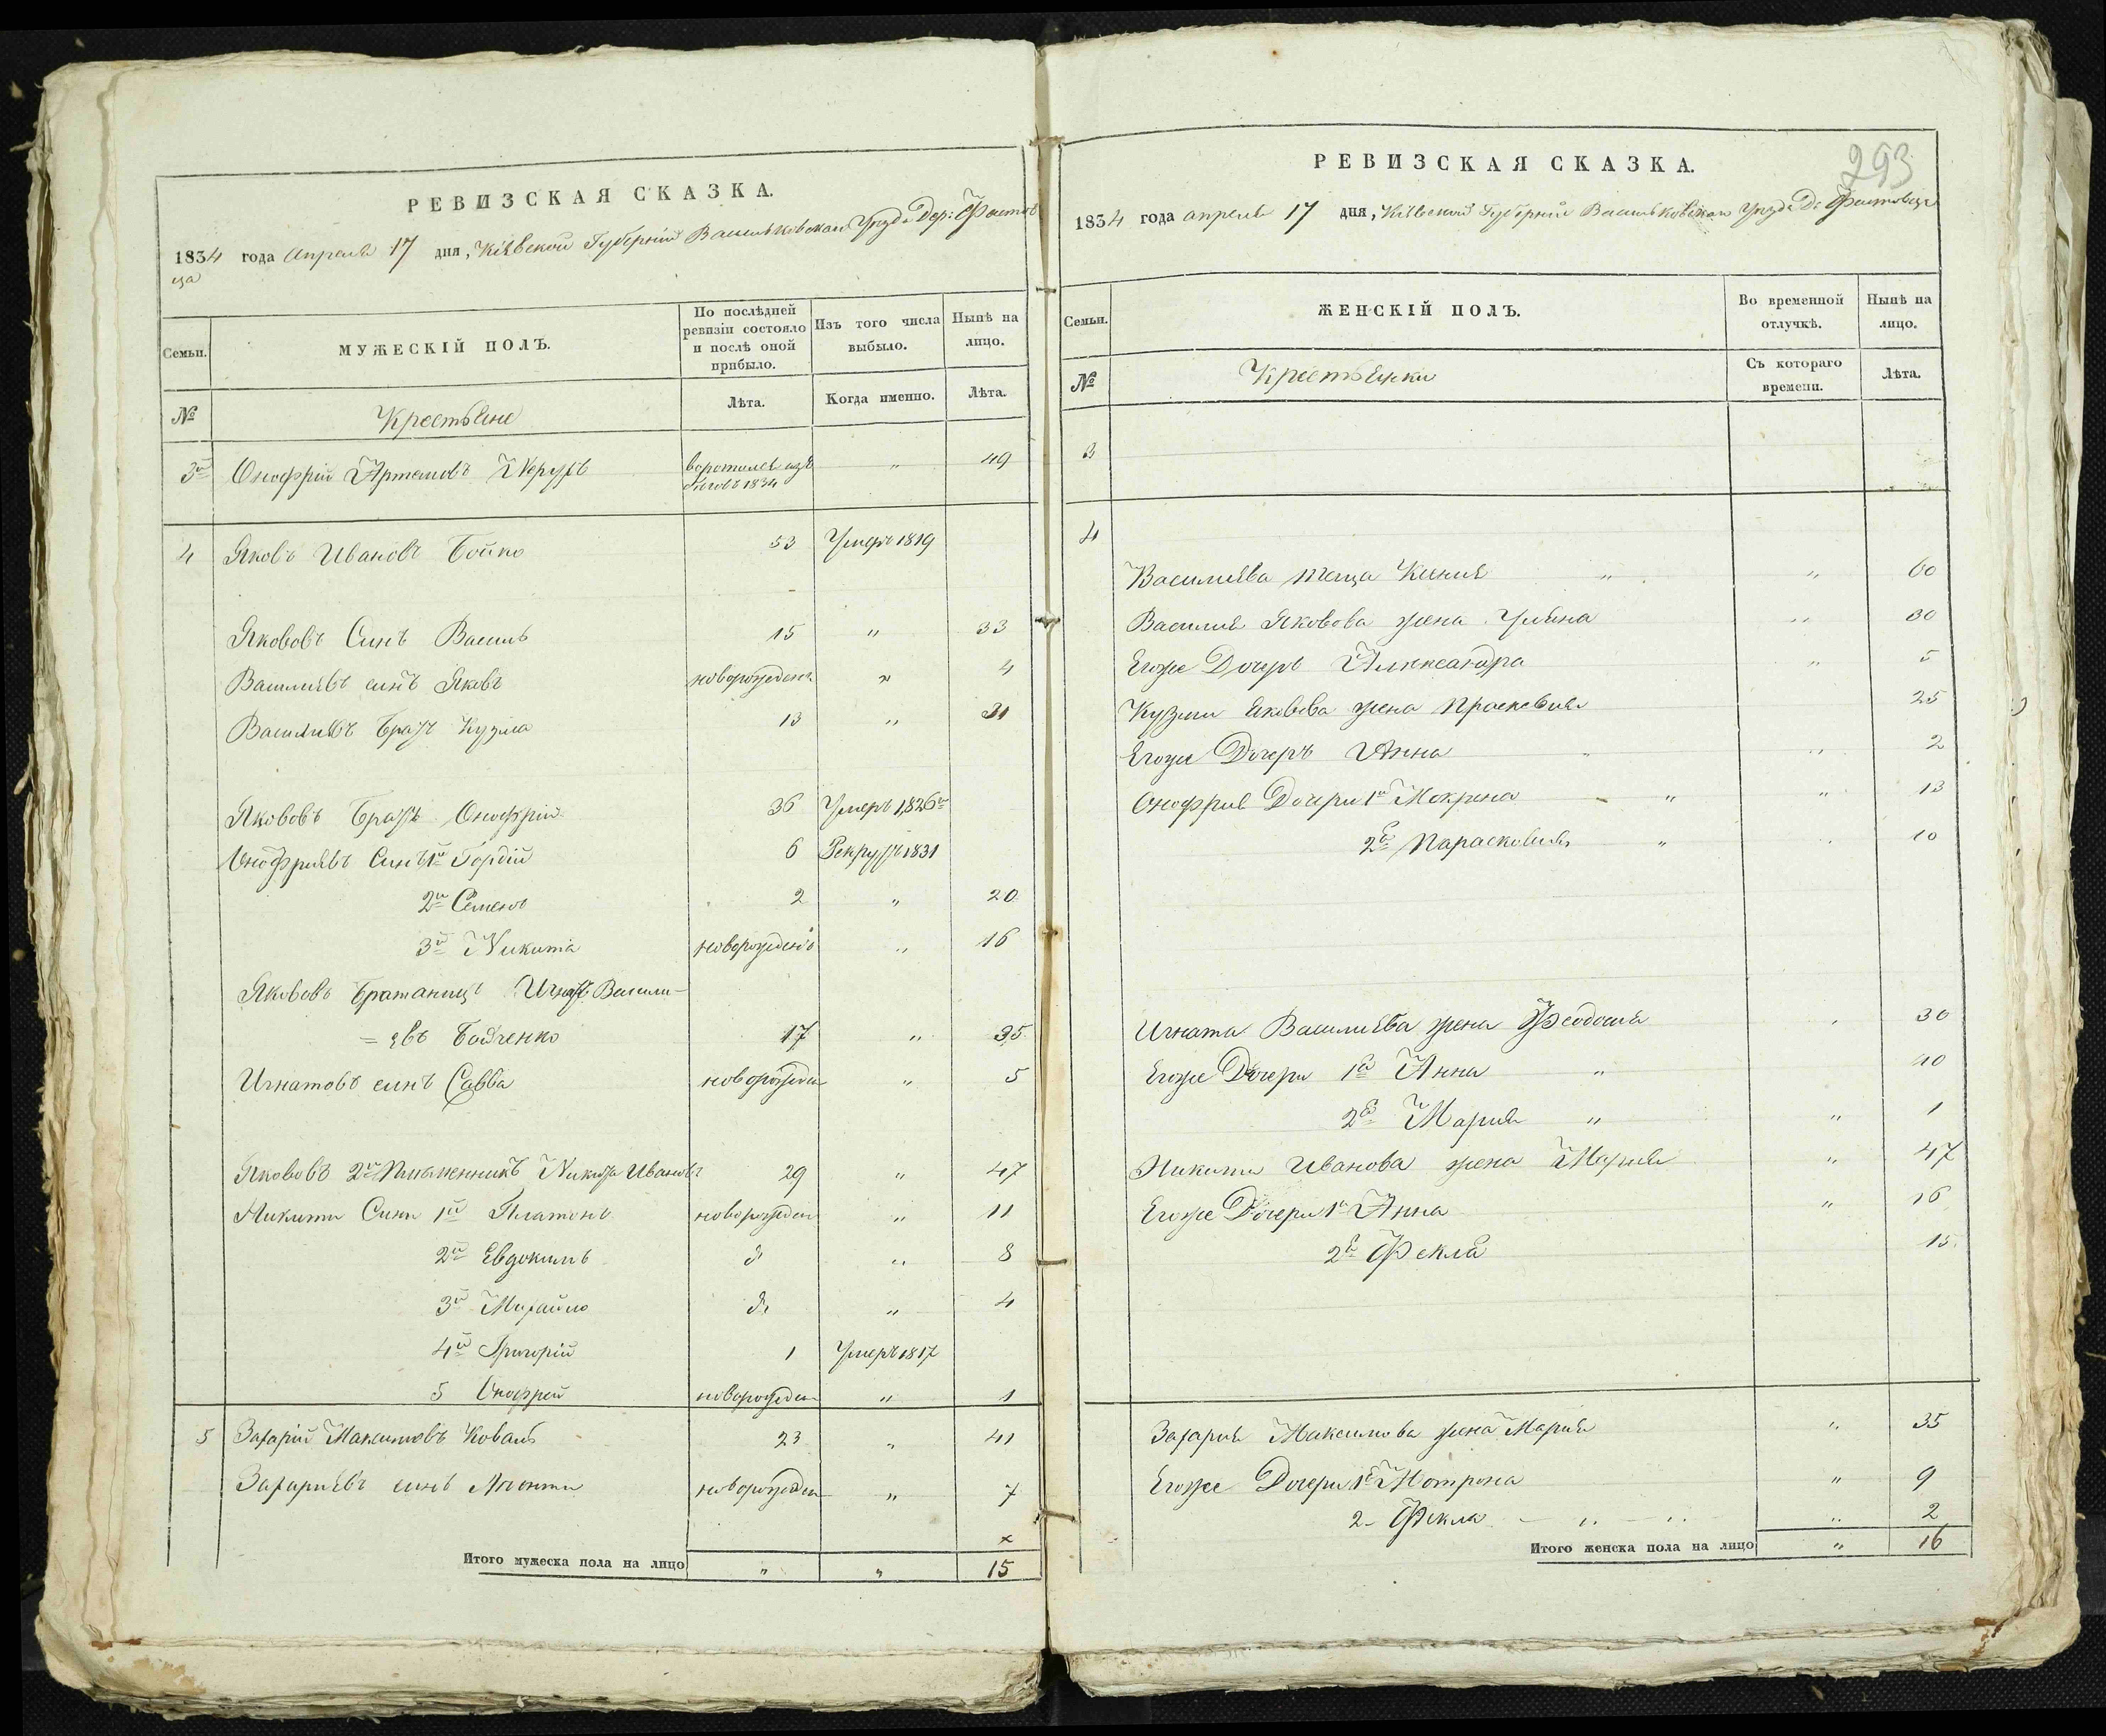 РЕВИЗСКАЯ СКАЗКА.
1834 года Апреля 17 дня, Кіевской Губерніи Васильковскаго Уезда Дер: Фастов
ца
Семьи. МУЖЕСКІЙ ПОЛЪ. По послѣдней ревизіи состояло и послѣ оной прибыло. Изъ того числа выбыло. Нынѣ на лицо.
№ Крестьяне Лѣта. Когда именно. Лѣта.
3й Онофрій Артемовъ воротился изъ „ 49
1834
4 Яковъ Ивановъ Бойко 53 Умеръ 1819
Якововъ Синъ Василь 15 „ 33
Василіевъ синъ Яковъ новорожденъ „ 4
Василіевъ братъ Кузма 13 „ 31
Якововъ братъ Онофрій 36 Умеръ 1826го
Онофріевъ Синъ 1й Гордій 6 Рекрутъ 1831
2й Семенъ 2 „ 20
3й Никита новорожденъ „ 16
Якововъ братаницъ Игнатъ Васили-
=евъ Бойченко 17 „ 35
Игнатовъ синъ Савва новорожден „ 5
Якововъ 2й Племенникъ Никита Ивановъ 29 „ 47
Никити Сини 1й Платонъ новорожден „ 11
2й Евдокимъ д „ 8
3й Михайло д. „ 4
4й Григорій 1 Умеръ 1817
5 Онофрей новорожден „ 1
5 Захарій Максимовъ Коваль 23 „ 41
Захаріевъ синъ Леонти новорожден „ 7
×
Итого мужеска пола на лицо „ „ 15
293
РЕВИЗСКАЯ СКАЗКА.
1834 года апреля 17 дня, Кіевской Губерніи Васильковскаго Уезда Де Фастовца
Семьи. ЖЕНСКІЙ ПОЛЪ. Во временной отлучкѣ. Нынѣ на лицо.
№ Крестьянки Съ котораго времени. Лѣта.
3
4
Василіева теща Ксенія „ „ 60
Василія Яковова жена Уляна „ 30
Егоже Дочерь Александра „ 5
Кузми Яковова жена Прасковия 25
Егоже Дочерь Анна „ „ 2
Онофрия Дочери 1я Мокрена - „ „ 13
2я Парасковия „ „ 10
Игната Василиева жена Феодосия „ 30
Егоже Дочери 1я Анна „ 10
2я Мария „ „ 1
Никити Иванова жена Мария „ 47
Егоже Дочери 1я Анна „ 16
2я Фекла 15
Захария Максимова жена Мария „ 35
Егоже Дочери 1я Мотрона „ 9
2- Фекла - „ - „ „ 2
Итого женска пола на лицо „ 16